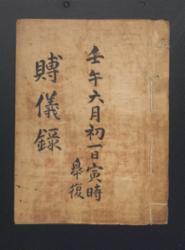 壬午六月初一日寅時
皐復
賻儀錄